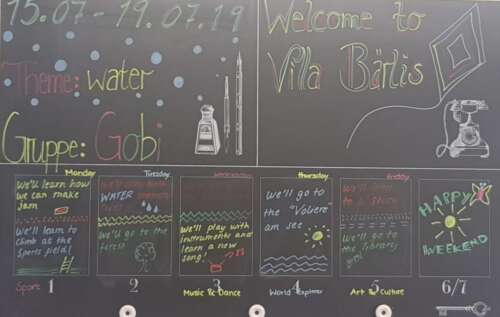 15.07 - 19.07.19
Theme: water
Gruppe: Gobi
Welcome to
Villa Bärlis
Monday
We'll learn how
we can make
jam
We'll learn to
climb at the
sports field!
Sport 1
Tuesday
WATER
We'll go to the
forest
2
We'll play with
instruments and
learn a new
song!
3
Music & Dance
Thursday
We'll go to
the "Volvero"
am see
4
World Explorer
Friday
We'll go to
the library
5
Art & Culture
HAPPY
WEEKEND
6/7